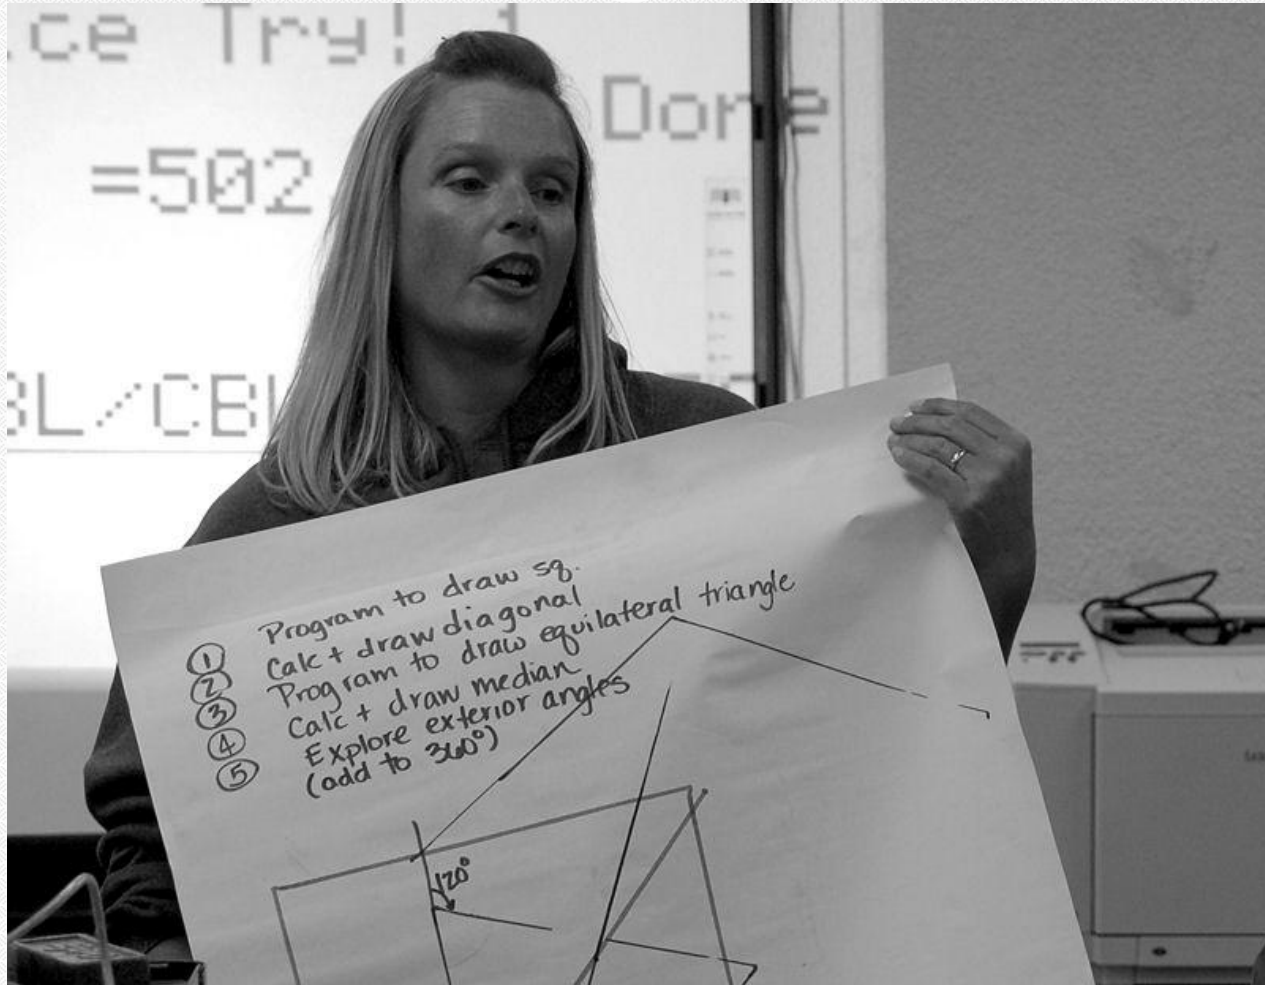 ce Try! 1
Done
=502
BL/CBL
① Program to draw sq.
② Calc + draw diagonal
③ Program to draw equilateral triangle
④ Calc + draw median
⑤ Explore exterior angles
(add to 360°)
120°